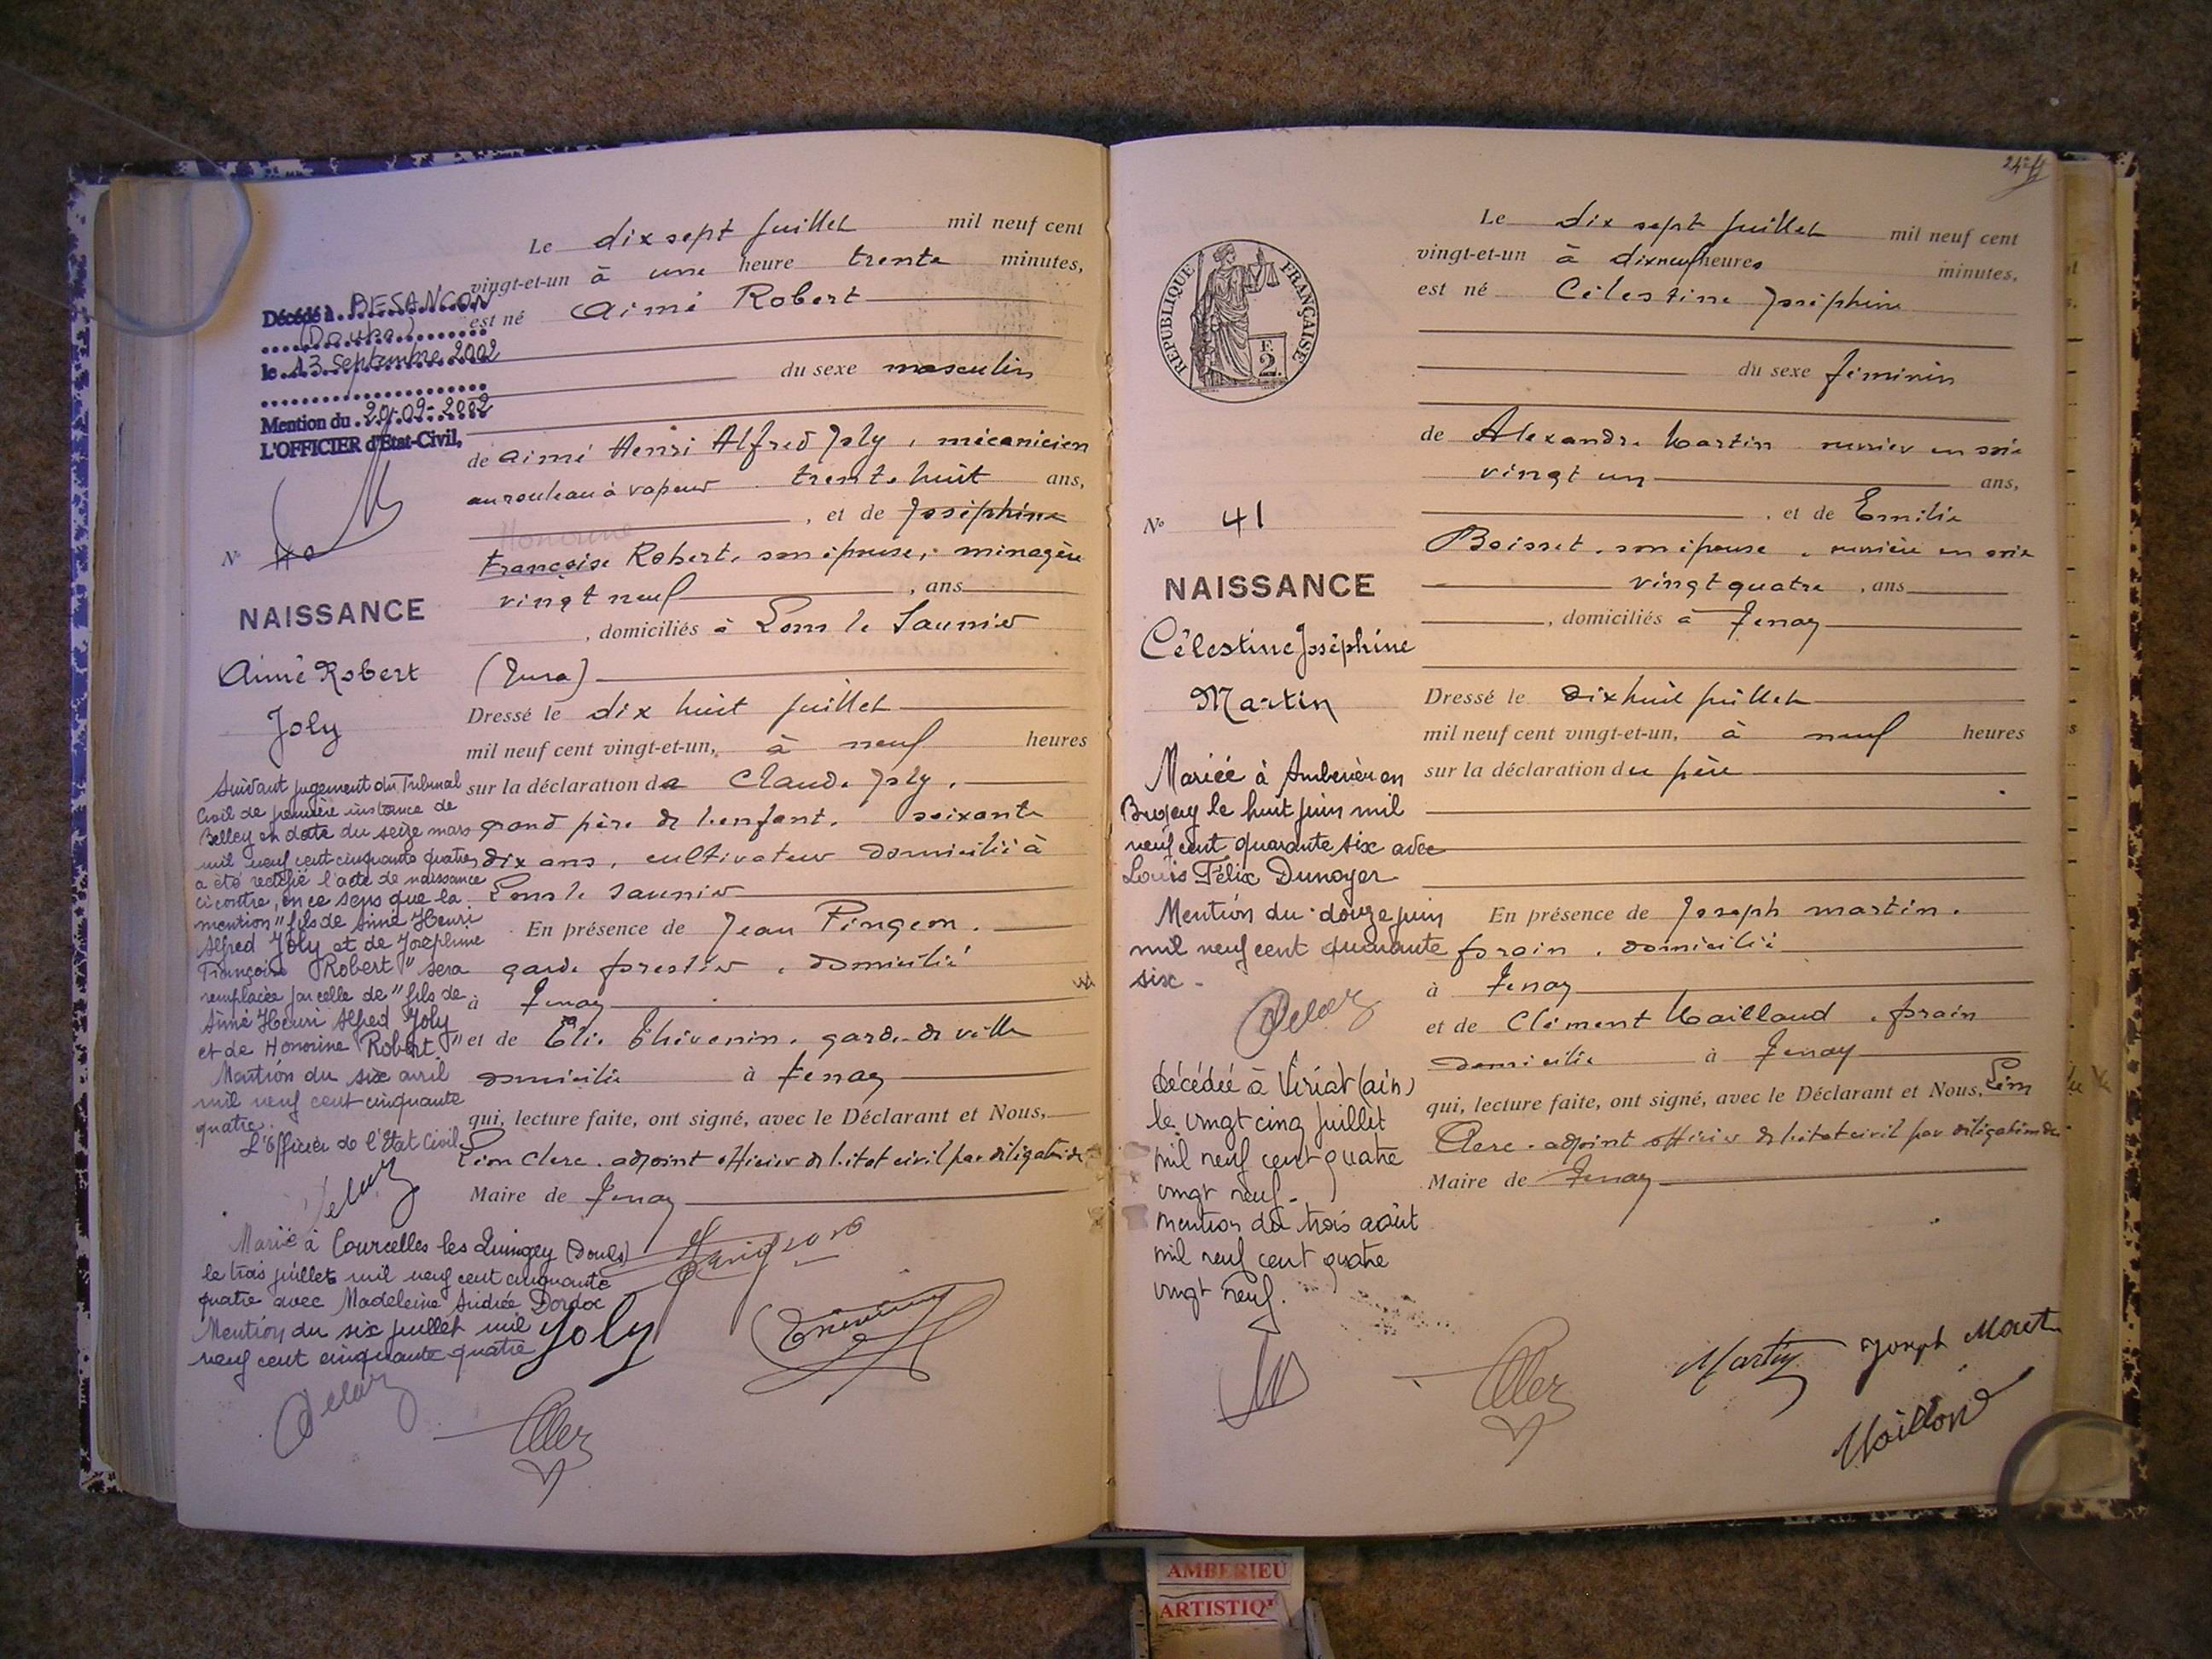 Le dix sept juillet mil neuf cent
vingt-et-un à une heure trente minutes,
est né Aimé Robert
du sexe masculin
de Aimé Henri Alfred Joly, mécanicien
au rouleau à vapeur trente huit ans,
, et de Joséphine
Honorine
Françoise Robert, son épouse, ménagère
vingt neuf , ans
, domiciliés à Lons le Saunier
(Jura)
Dressé le dix huit juillet
mil neuf cent vingt-et-un, à neuf heures
sur la déclaration de Claude Joly,
grand père de l'enfant, soixante
dix ans, cultivateur domicilié à
Lons le Saunier
En présence de Jean Pingeon,
garde forestier, domicilié
à Tenay
et de Elie Thévenin, garde de ville
domicilié à Tenay
qui, lecture faite, ont signé, avec le Déclarant et Nous,
Léon Clerc, adjoint officier de l'état civil par délégation du
Maire de Tenay
Joly
Décédé à BESANCON
(Doubs)
le 13 Septembre 2002
Mention du 20-09-2002
L'OFFICIER d'Etat-Civil,
N° 40
NAISSANCE
Aimé Robert
Joly
Suivant jugement du Tribunal
Civil de première instance de
Belley en date du seize mars
mil neuf cent cinquante quatre
a été rectifié l'acte de naissance
ci contre, en ce sens que la
mention "fils de Aimé Henri
Alfred Joly et de Joséphine
Françoise Robert" sera
remplacée par celle de "fils de
Aimé Henri Alfred Joly
et de Honorine Robert."
Mention du six avril
mil neuf cent cinquante
quatre.
L'Officier de l'Etat Civil
Marié à Courcelles les Quingey (Doubs)
le trois juillet mil neuf cent cinquante
quatre avec Madeleine Andrée Dordox
Mention du six juillet mil
neuf cent cinquante quatre
Le dix sept juillet mil neuf cent
vingt-et-un à dixneuf heures minutes,
est né Célestine Joséphine
du sexe féminin
de Alexandre Martin ouvrier en soie
vingt un ans,
, et de Emilie
Boisset, son épouse, ouvrière en soie
vingt quatre , ans
, domiciliés à Tenay
Dressé le dix huit juillet
mil neuf cent vingt-et-un, à neuf heures
sur la déclaration du père
En présence de Joseph Martin,
forain, domicilié
à Tenay
et de Clément Maillaud, forain
domicilié à Tenay
qui, lecture faite, ont signé, avec le Déclarant et Nous, Léon
Clerc, adjoint officier de l'état civil par délégation du
Maire de Tenay
Martin Joseph Mart
RÉPUBLIQUE FRANÇAISE
F.
2.
N° 41
NAISSANCE
Célestine Joséphine
Martin
Mariée à Ambérieu en
Bugey le huit juin mil
neuf cent quarante six avec
Louis Félix Dunoyer
Mention du douze juin
mil neuf cent quarante
six -
Décédée à Viriat (ain)
le vingt cinq juillet
mil neuf cent quatre
vingt neuf -
mention du trois août
mil neuf cent quatre
vingt neuf.
AMBERIEU
ARTISTIQ